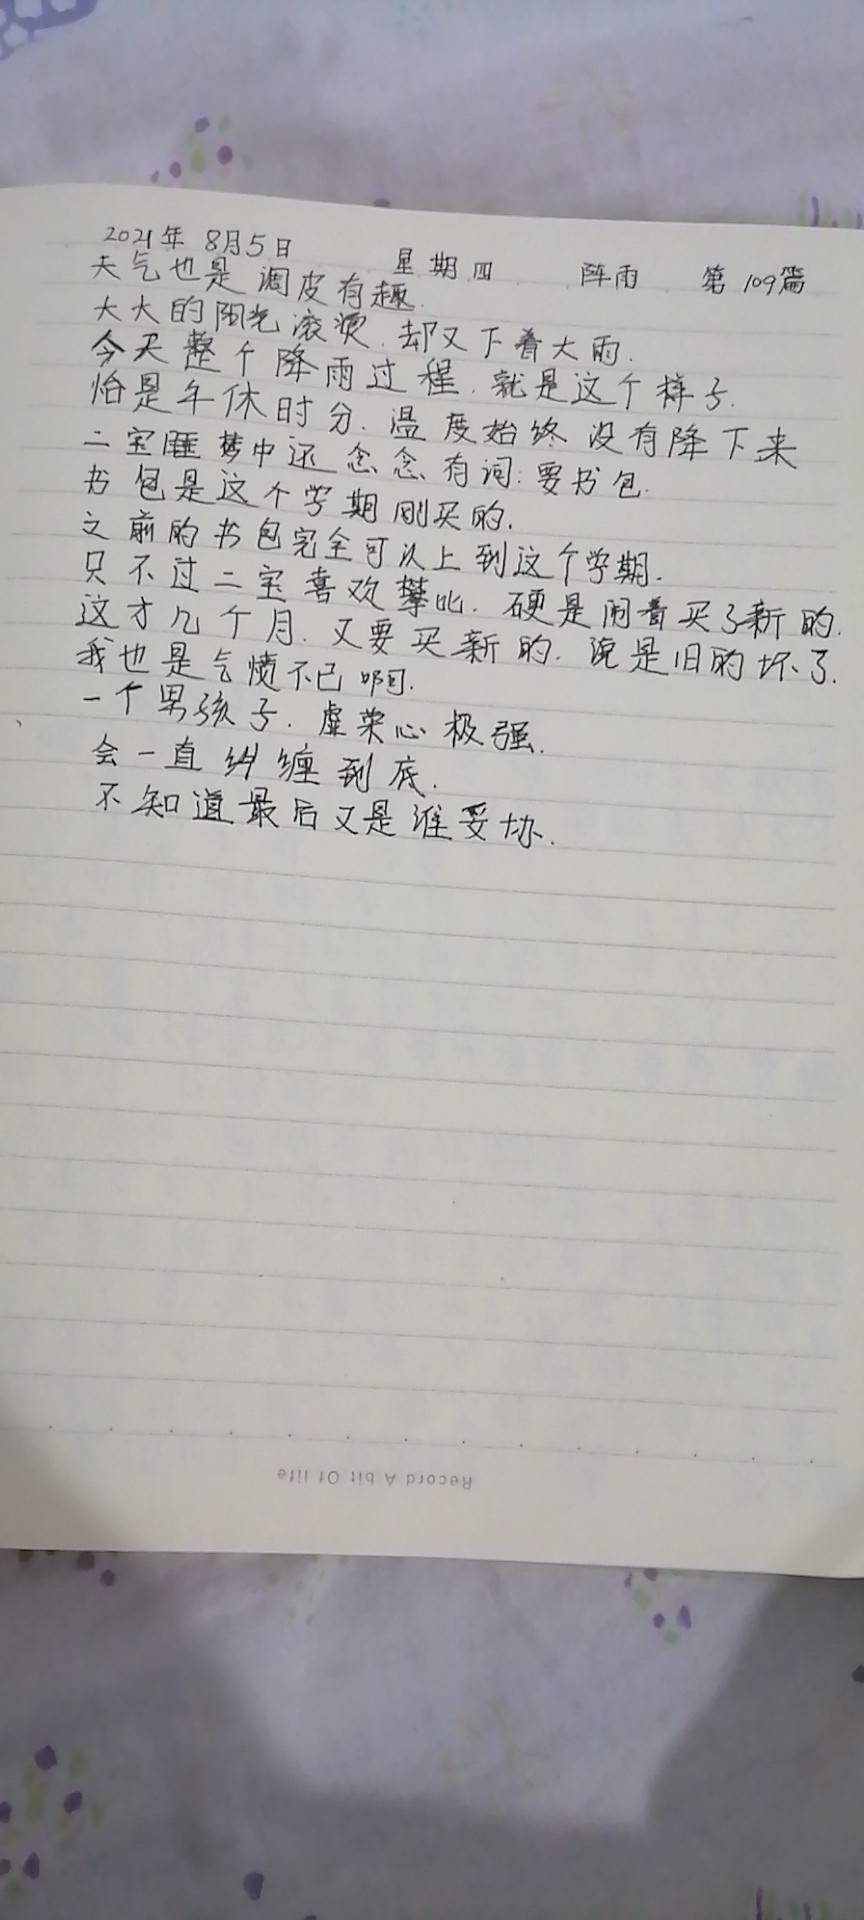 2021年 8月5日 星期四 阵雨 第109篇
天气也是调皮有趣.
大大的阳光滚烫.却又下着大雨.
今天整个降雨过程.就是这个样子.
怕是午休时分.温度始终没有降下来
二宝睡梦中还念念有词:要书包.
书包是这个学期刚买的.
之前的书包完全可以上到这个学期.
只不过二宝喜欢攀比.硬是闹着买了新的.
这才几个月.又要买新的.说是旧的坏了.
我也是气愤不已啊.
一个男孩子.虚荣心极强.
会一直纠缠到底.
不知道最后又是谁妥协.
Record A bit Of life